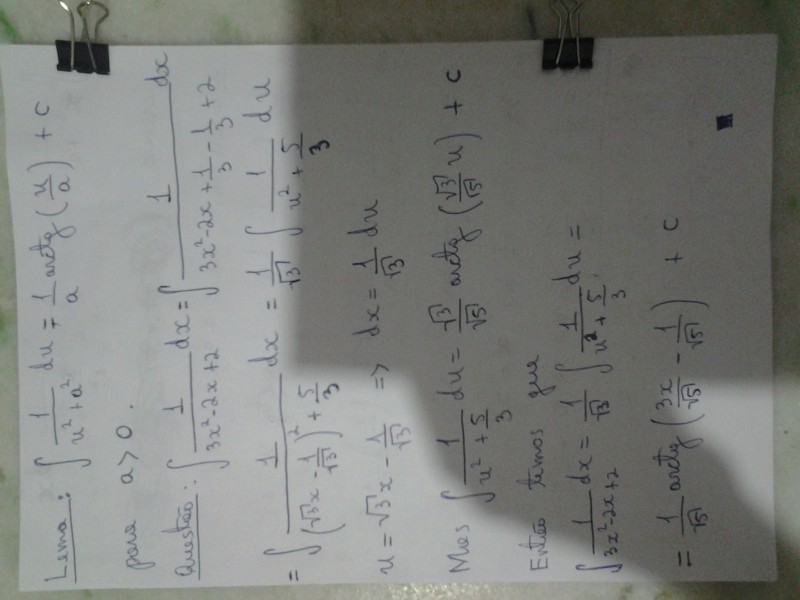 Lema: ∫ 1/(u²+a²) du = 1/a arctg (u/a) + C
para a > 0.
Questão: ∫ 1/(3x²-2x+2) dx = ∫ 1/(3x²-2x+1/3-1/3+2) dx
= ∫ 1/((√3x - 1/√3)² + 5/3) dx = 1/√3 ∫ 1/(u² + 5/3) du
u = √3x - 1/√3 => dx = 1/√3 du
Mas ∫ 1/(u² + 5/3) du = √3/√5 arctg (√3/√5 u) + C
Então temos que
∫ 1/(3x²-2x+2) dx = 1/√3 ∫ 1/(u² + 5/3) du =
= 1/√5 arctg (3x/√5 - 1/√5) + C